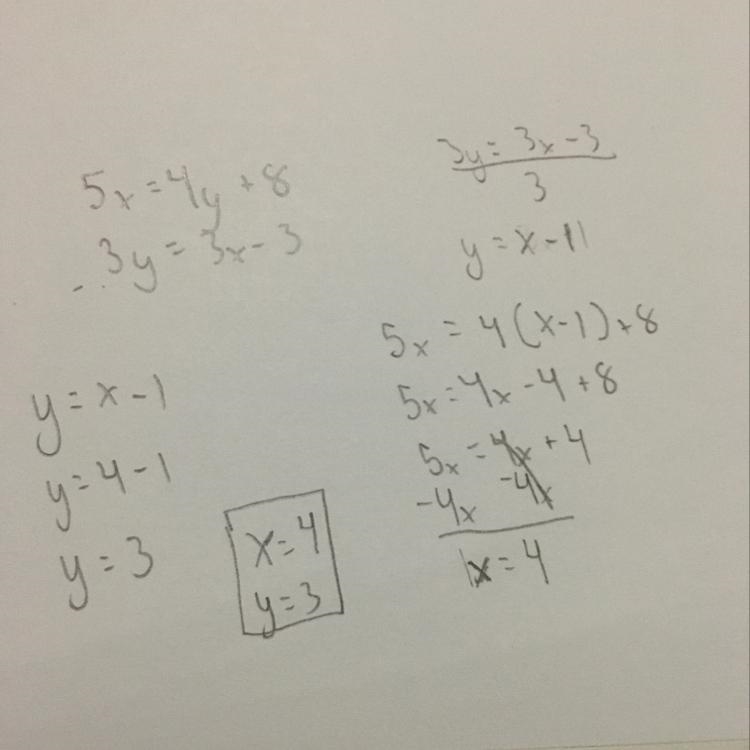 5x = 4y + 8
3y = 3x - 3
3y = 3x - 3
3
y = x - 1
5x = 4(x-1) + 8
5x = 4x - 4 + 8
5x = 4x + 4
-4x -4x
1x = 4
y = x - 1
y = 4 - 1
y = 3
x = 4
y = 3